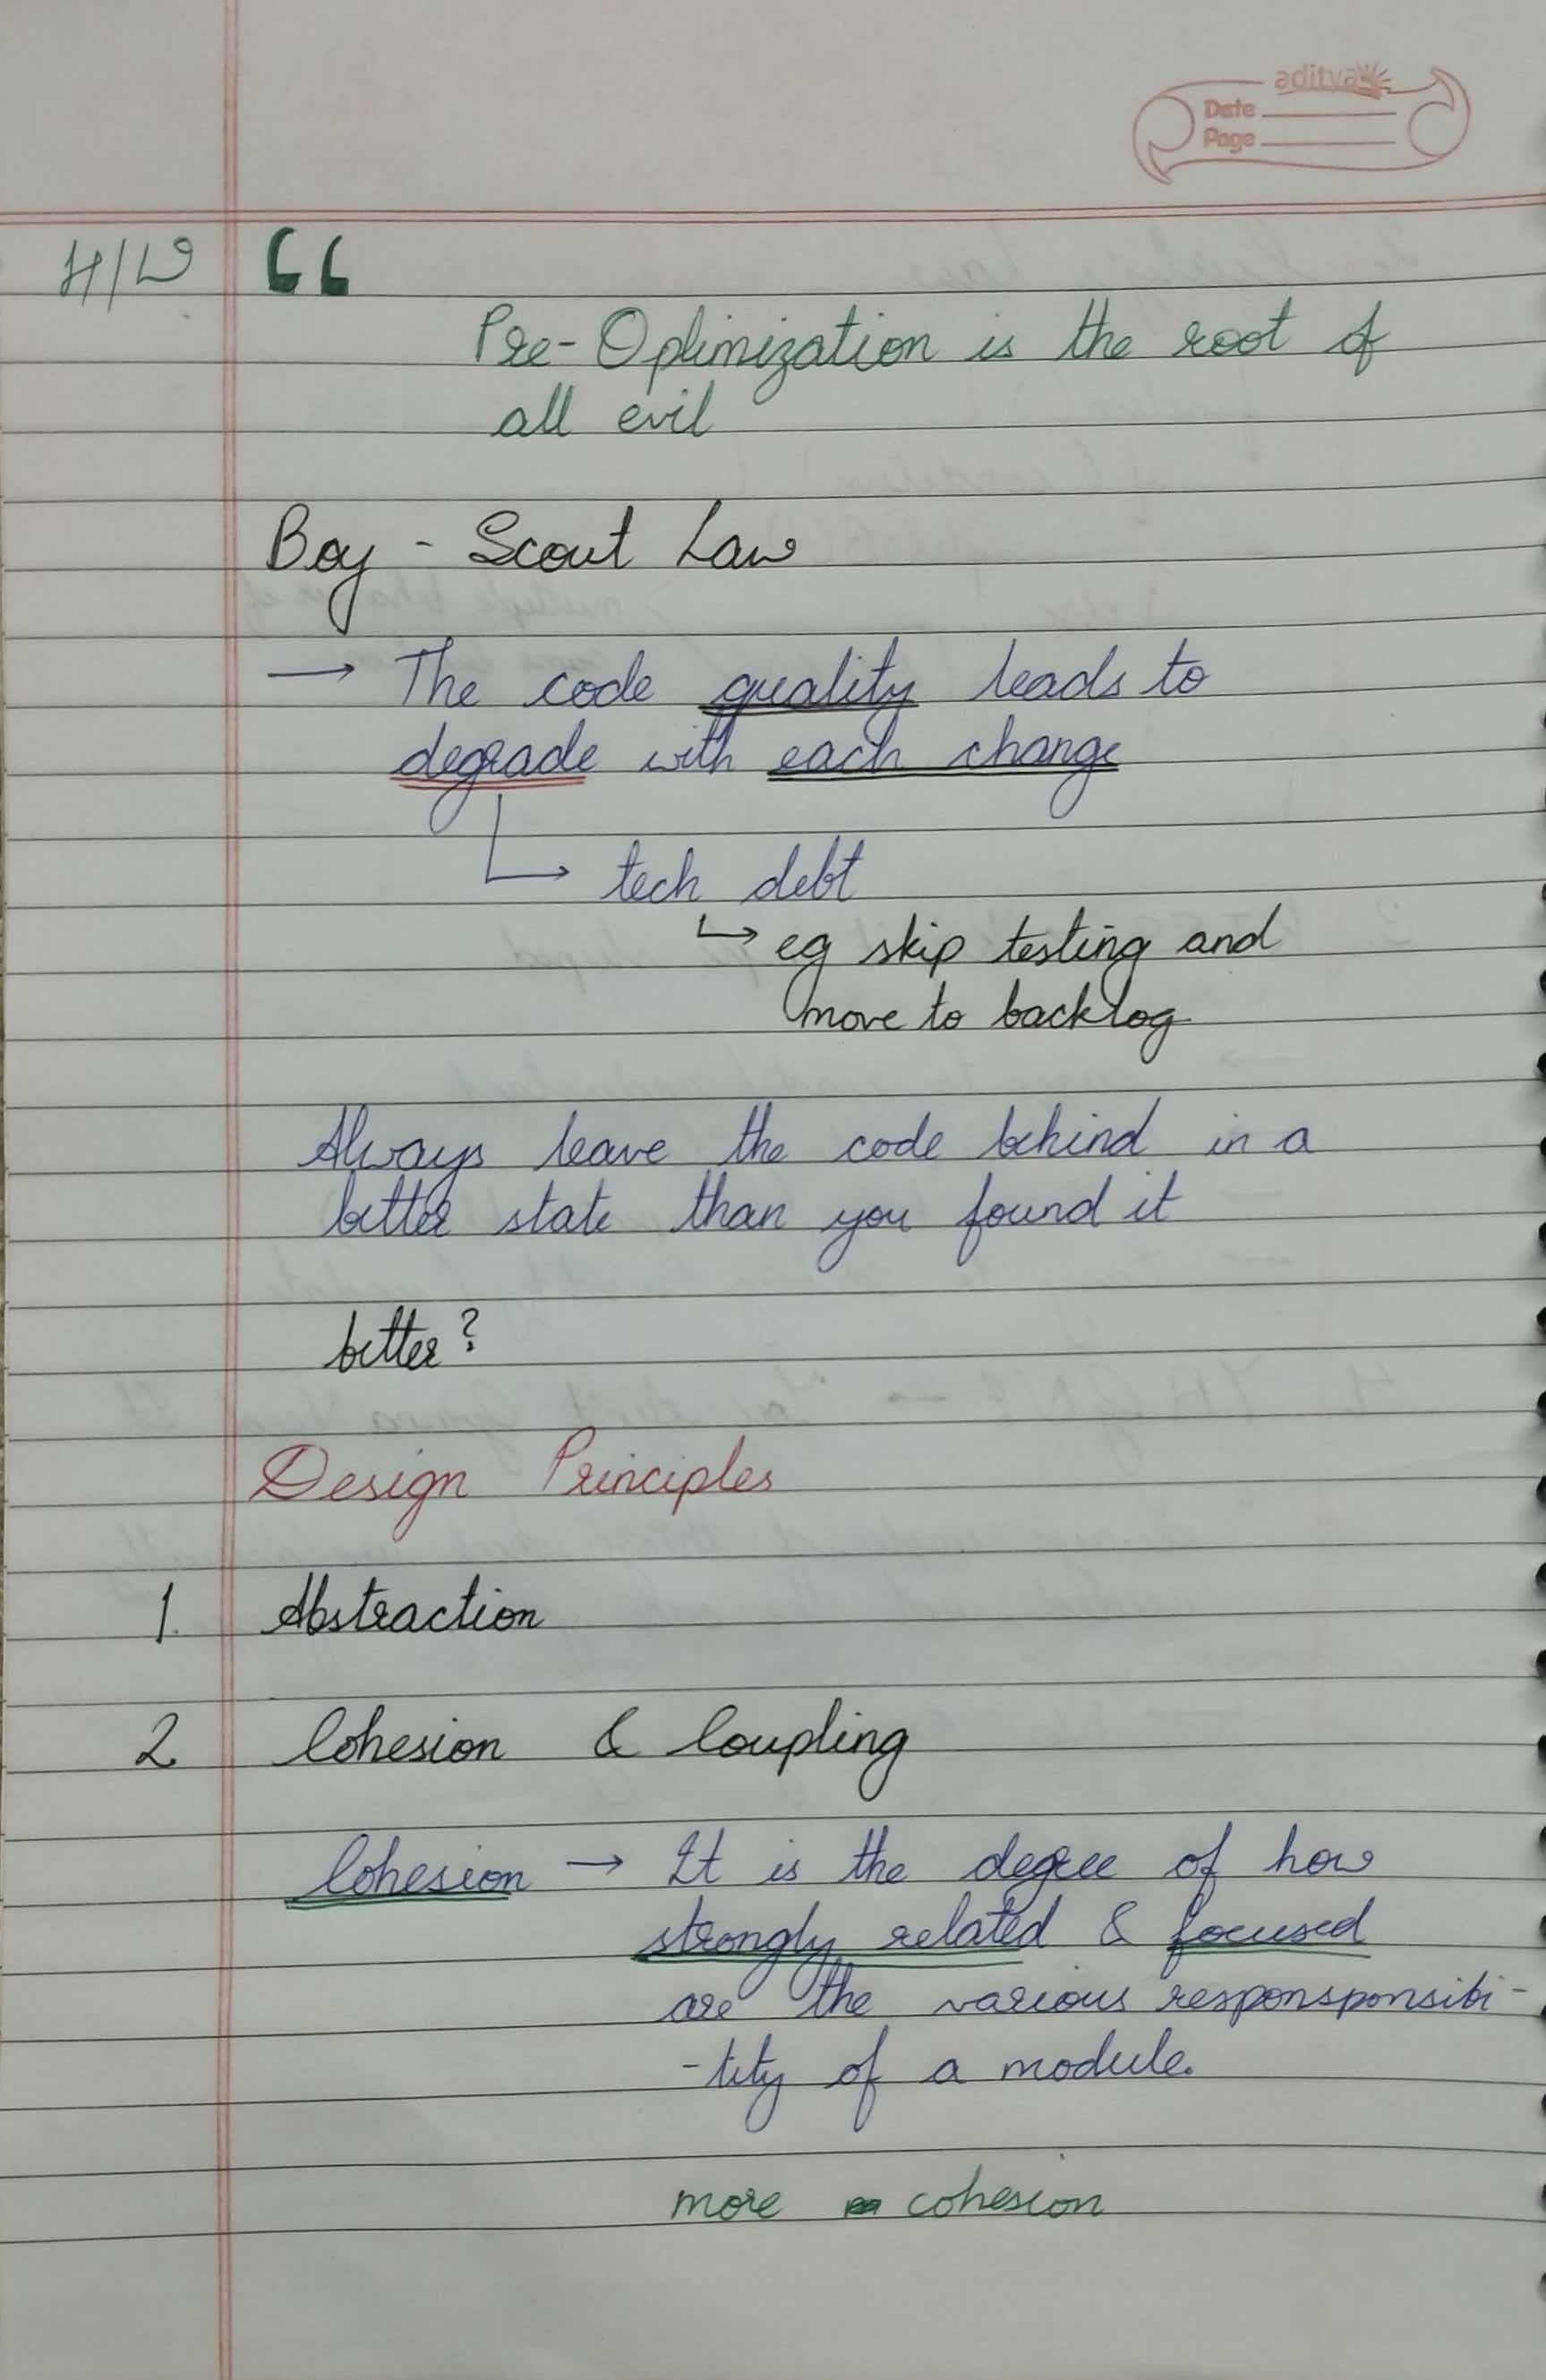 aditya
Date
Page
H/W “
Pre-Optimization is the root of
all evil
Boy - Scout Law
→ The code quality leads to
degrade with each change
↳ tech debt
↳ eg skip testing and
move to backlog
Always leave the code behind in a
better state than you found it
better?
Design Principles
1. Abstraction
2 Cohesion & Coupling
Cohesion → It is the degree of how
strongly related & focused
are the various responsponsibi-
-lity of a module.
more cohesion